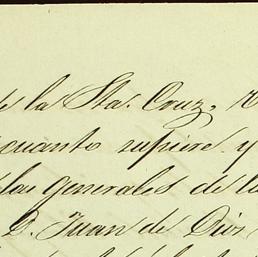 de la Sta. Cruz,
cuanto supiere y
las generales de la
D. Juan de Dios